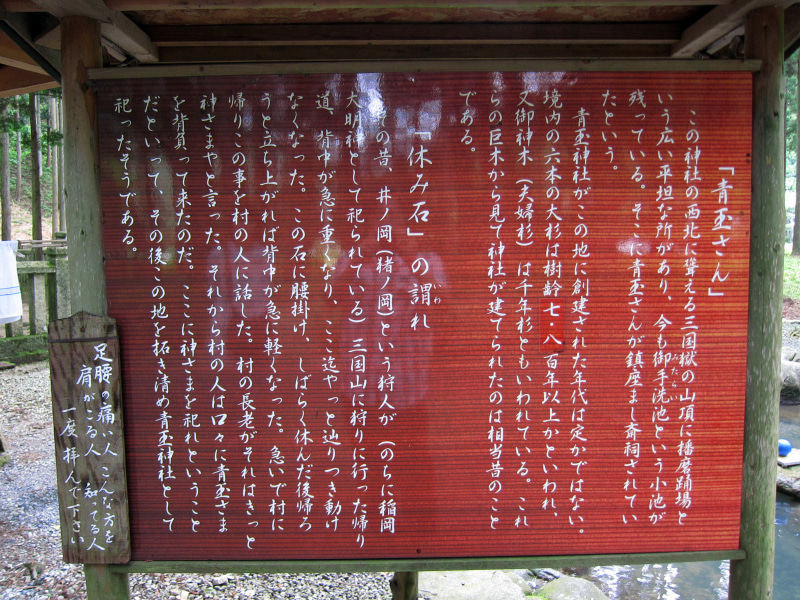 「青玉さん」
この神社の西北に聳える三国嶽の山頂に播磨踊場と
いう広い平坦な所があり、今も御手洗池という小池が
みたらい
残っている。そこに青玉さんが鎮座まし斎祠されてい
たという。
青玉神社がこの地に創建された年代は定かではない。
境内の六本の大杉は樹齢七・八百年以上かといわれ、
又御神木(夫婦杉)は千年杉ともいわれている。これ
らの巨木から見て神社が建てられたのは相当昔のこと
である。
「休み石」の謂れ
いわ
その昔、井ノ岡(猪ノ岡)という狩人が(のちに稲岡
大明神として祀られている)三国山に狩りに行った帰り
道、背中が急に重くなり、ここ迄やっと辿りつき動け
なくなった。この石に腰掛け、しばらく休んだ後帰ろ
うと立ち上がれば背中が急に軽くなった。急いで村に
帰りこの事を村の人に話した。村の長老がそれはきっと
神さまやと言った。それから村の人は口々に青玉さま
を背負って来たのだ。ここに神さまを祀れということ
だといって、その後この地を拓き清め青玉神社として
祀ったそうである。
足腰の痛い人 こんな方を
肩がこる人 知ってる人
一度拝んで下さい